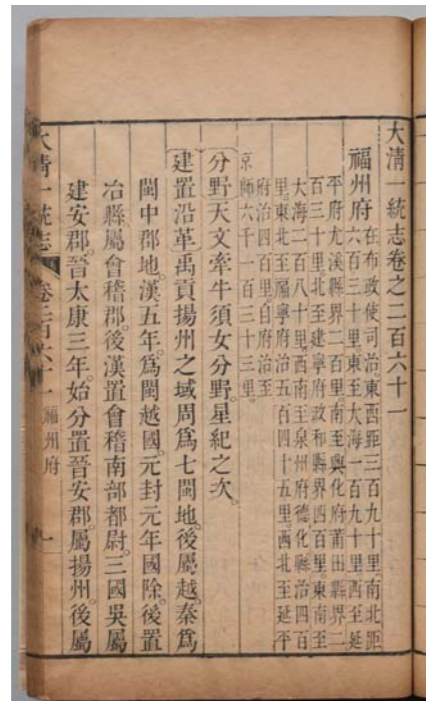 大清一統志卷之二百六十一
福州府
在布政使司治東西距三百九十里南北距
六百三十里東至大海一百九十里西至延
平府尤溪縣界二百里南至興化府莆田縣界二
百三十里北至建寧府政和縣界四百里。東南至
大海二百八十里西南至泉州府德化縣治四百
里東北至福寧府治五百四十五里。西北至延平
府治四百里。自府治至
京師六千一百三十三里。
〔分野〕天文牽牛須女分野。星紀之次。
〔建置沿革〕禹貢揚州之域。周爲七閩地。後屬越。秦爲
閩中郡地。漢五年。爲閩越國。元封元年國除。後置
冶縣。屬會稽郡。後漢置會稽南部都尉。三國吳屬
建安郡。晉太康三年。始分置晉安郡。屬揚州。後屬
大清一統志 卷二百六十一 福州府 一